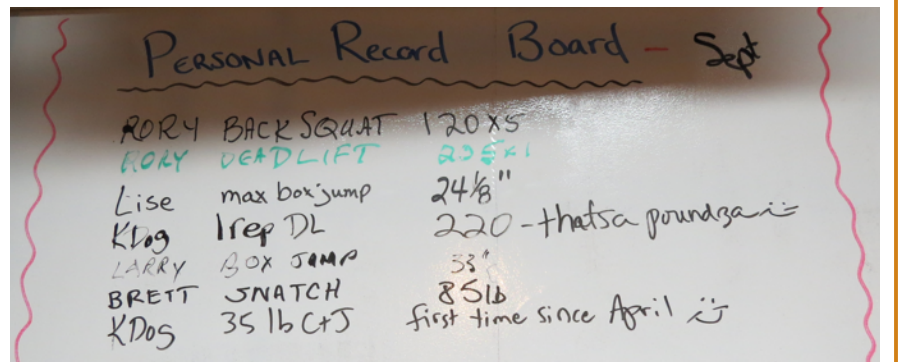 PERSONAL Record Board - Sept
RORY BACK SQUAT 120x5
RORY DEADLIFT 225x1
Lise max box jump 24 1/8"
KDog 1rep DL 220 - thatsa poundza
LARRY BOX JUMP 33"
BRETT SNATCH 85lb
KDog 35 lb C+J first time since April